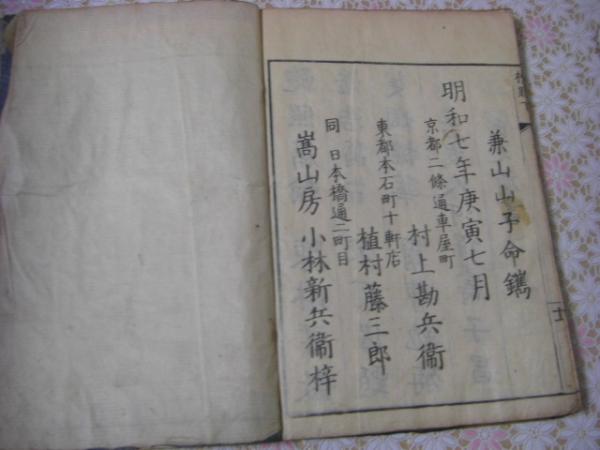 兼山山子命鐫
明和七年庚寅七月
京都二條通車屋町
村上勘兵衞
東都本石町十軒店
植村藤三郎
同 日本橋通二町目
嵩山房 小林新兵衞梓